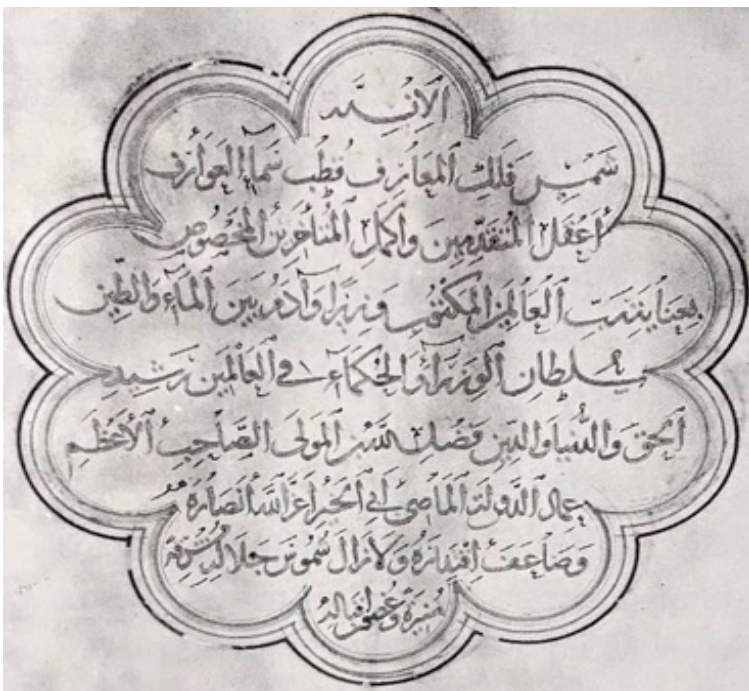 الانسية
شمس فلك المعارف قطب سماء العوارف
أعقل المتقدمين وأكمل المتأخرين المخصوص
بعناية رب العالمين المكتوب وزيرا وآدم بين الماء والطين
سلطان الوزراء والحكماء في العالمين رشيد
الحق والدنيا والدين فضل الله بن المولى الصاحب الأعظم
عماد الدولة الماضي أبي الخير أعز الله أنصاره
وضاعف اقتداره ولازال شموس جلاله مشرقة
منيرة وغصون اقباله